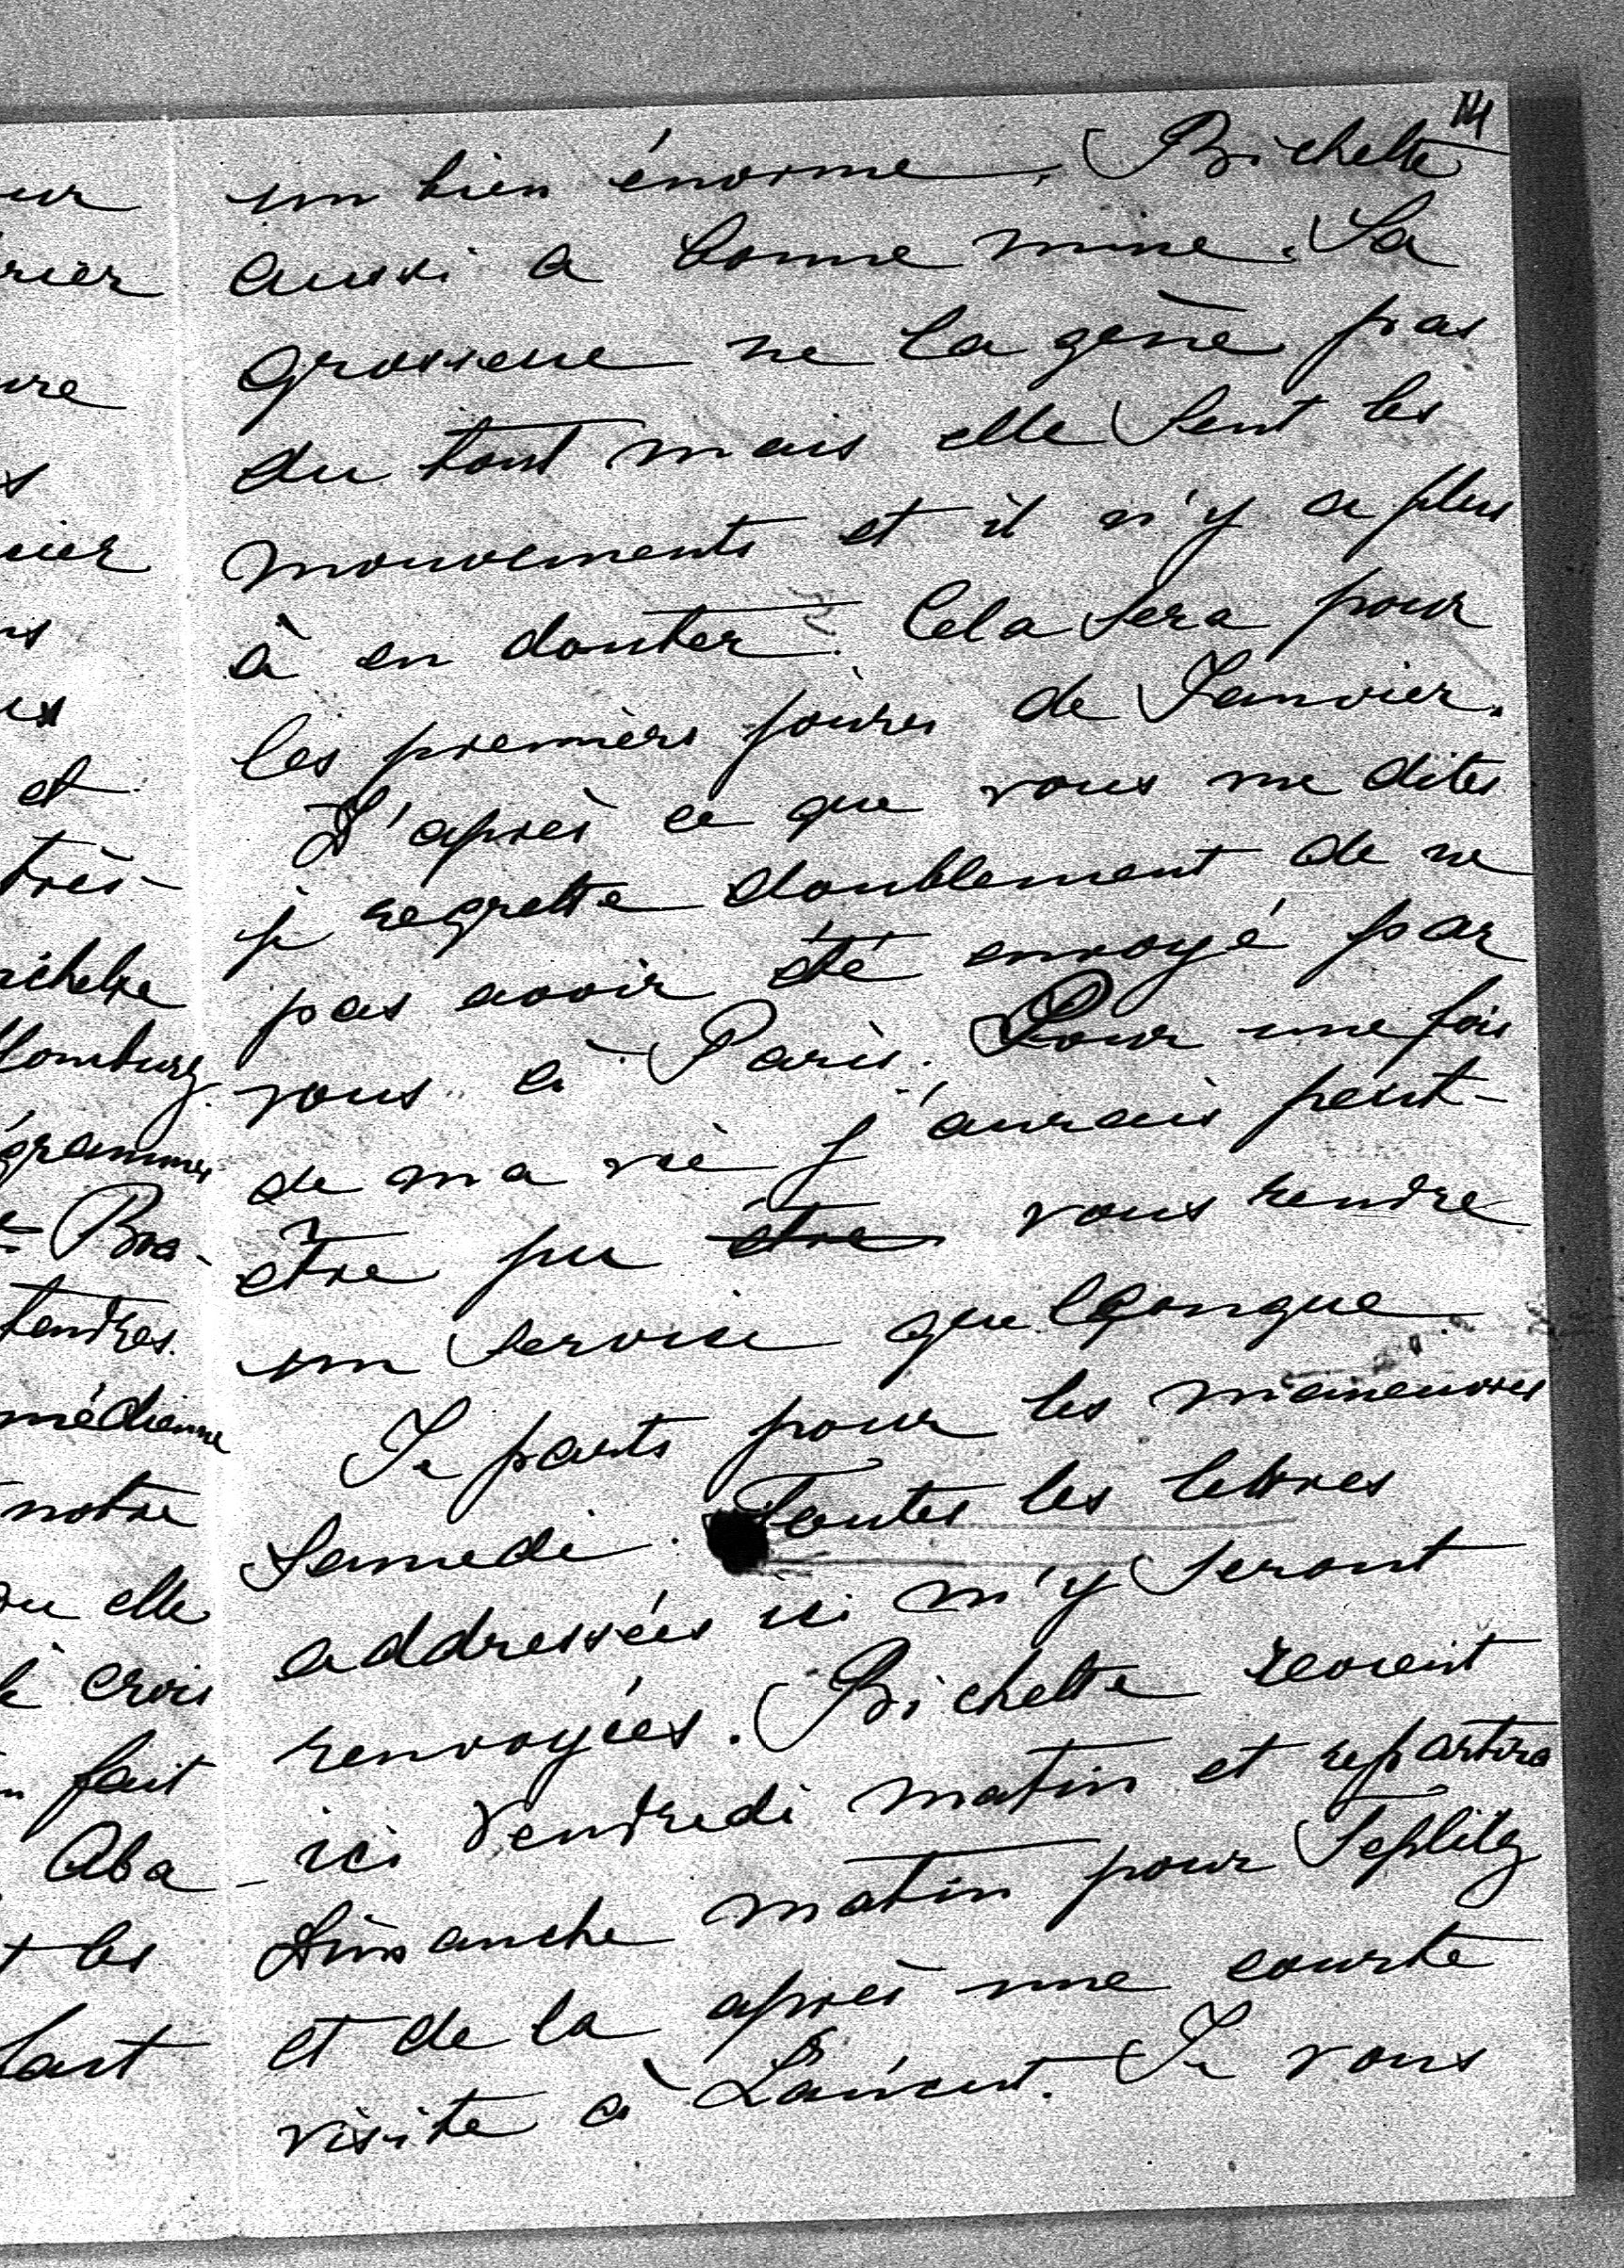 14
un bien énorme. Bichette
aussi a bonne mine. Sa
grosseur ne la gène pas
du tout mais elle sent les
mouvements et il n'y a plus
à en douter. Cela sera pour
les premièrs jours de Janvier.
D'après ce que vous me dites
je regrette doublement de ne
pas avoir été envoyé par
vous à Paris. Pour une fois
de ma vie j'aurais peut-
être pu être vous rendre
un service quelconque.
Je parts pour les manoeuvres
Samedi. Toutes les lettres
addressées ici m'y seront
renvoyées. Bichette revient
ici Vendredi matin et repartira
Dimanche matin pour Teplitz
et de la après une courte
visite à Je vous
ur
rier
ure
s
et
très-
ichette
Homburg.
égrammes
Bra-
tendres.
médienne
notre
ou elle
crois
fait
Aba-
les